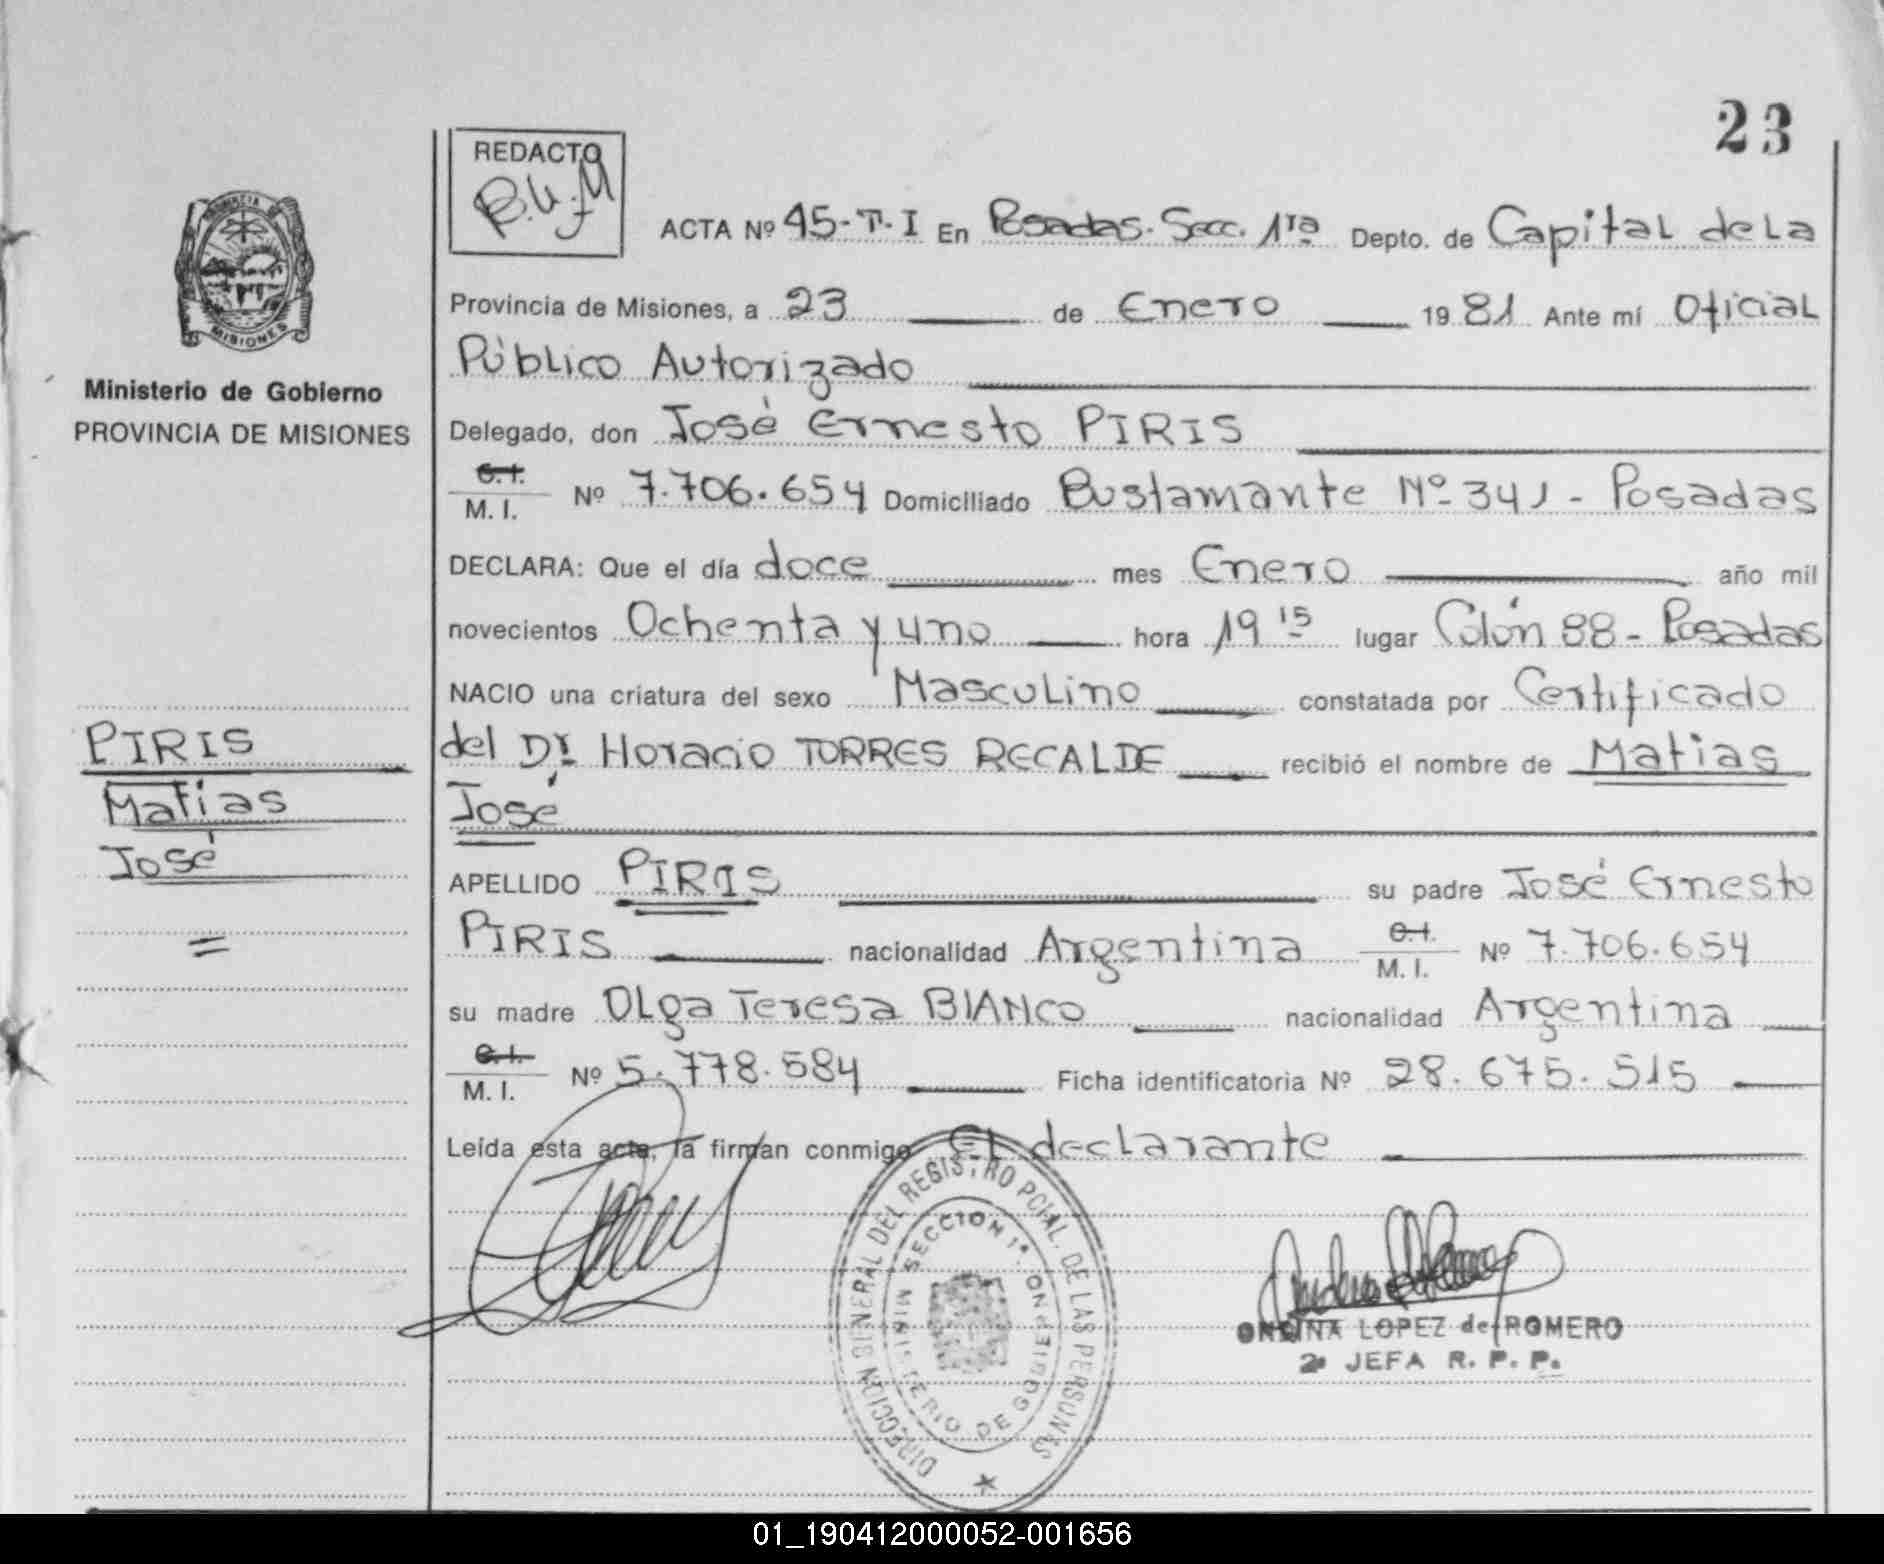 23
REDACTO
PROVINCIA DE MISIONES
ACTA Nº 45-T-I En Posadas. Secc. 1ra Depto. de Capital de La
Provincia de Misiones, a 23 de Enero 1981 Ante mí Oficial
Público Autorizado
Ministerio de Gobierno
PROVINCIA DE MISIONES
Delegado, don José Ernesto PIRIS
C.I. M. I. Nº 7.706.654 Domiciliado Bustamante Nº 341 - Posadas
DECLARA: Que el día doce mes Enero año mil
novecientos Ochenta y uno hora 19 15 lugar Colón 88 - Posadas
NACIO una criatura del sexo Masculino constatada por Certificado
PIRIS
Matias
José
=
del Dr. Horacio TORRES RECALDE recibió el nombre de Matias
José
APELLIDO PIRIS su padre José Ernesto
PIRIS nacionalidad Argentina C.I. M. I. Nº 7.706.654
su madre Olga Teresa BIANCO nacionalidad Argentina
C.I. M. I. Nº 5.778.584 Ficha identificatoria Nº 28.675.515
Leída esta acta, la firman conmigo El declarante
DIRECCION GENERAL DEL REGISTRO PCIAL. DE LAS PERSONAS
SECCION 1ª.
MINISTERIO DE GOBIERNO
LOPEZ de ROMERO
2ª JEFA R. P. P.
01_190412000052-001656